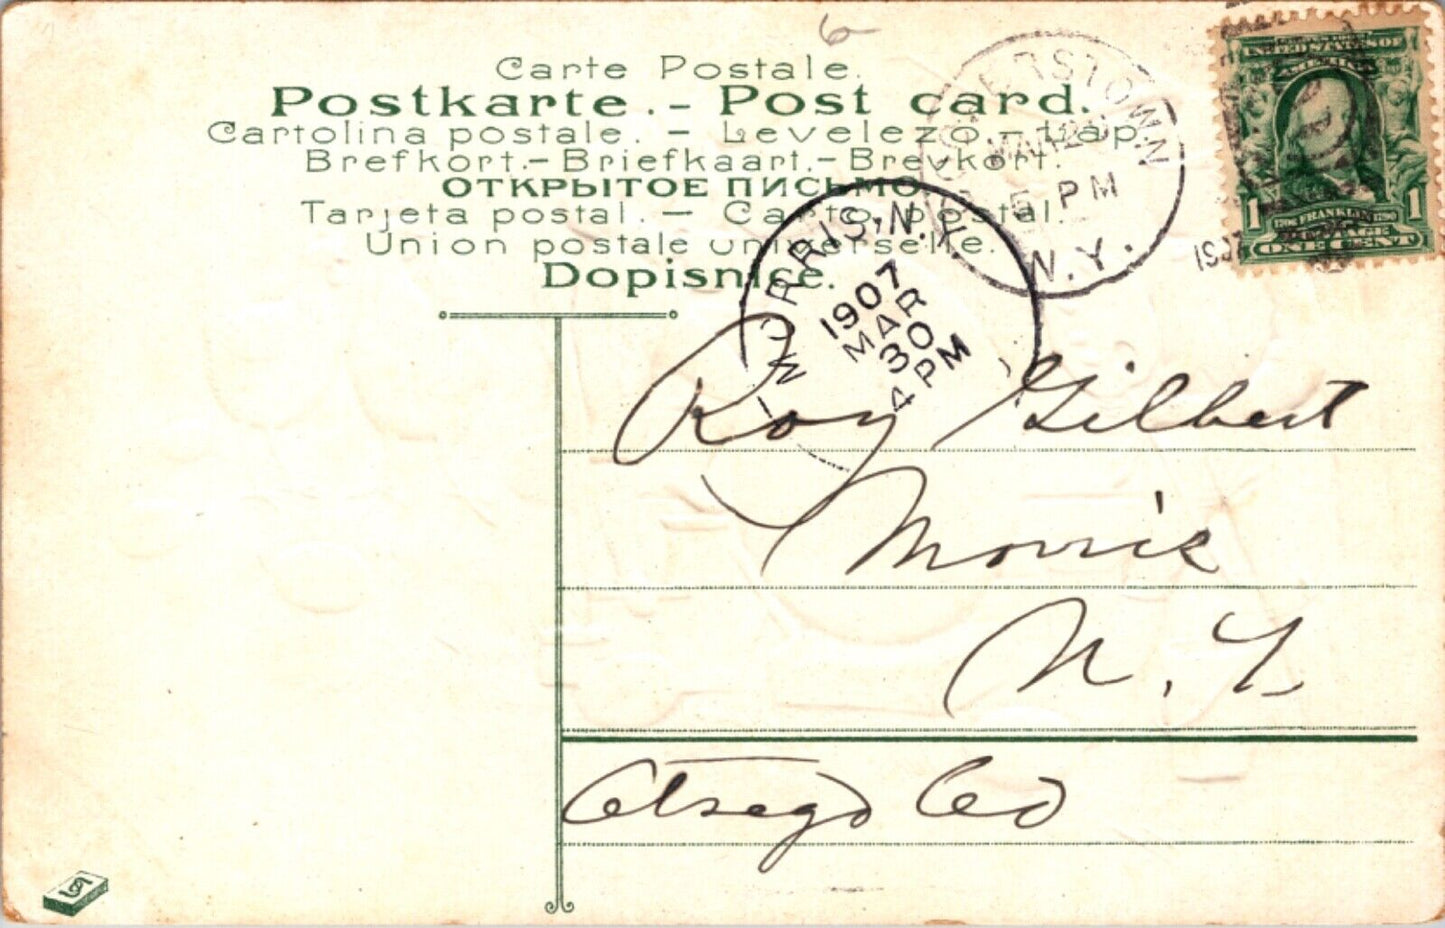 6
Carte Postale.
Postkarte.- Post card.
Cartolina postale. - Levelezö-Lap.
Brefkort.-Briefkaart.-Brevkort.
ОТКРЫТОЕ ПИСЬМО
Tarjeta postal. - Carto postal.
Union postale universelle.
Dopisnice.
UNITED STATES OF
1 FRANKLIN 1790 1
ONE CENT
5 PM
N.Y.
MORRIS, N.Y.
1907
MAR
30
4 PM
Roy Gilbert
Morris
N. Y.
Otsego Co